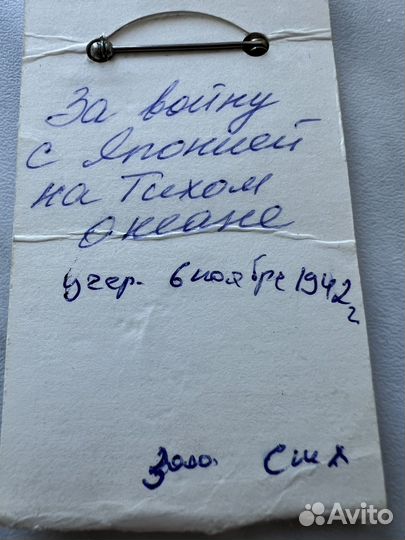 За войну
с Японией
на Тихом
океане
учер. 6 ноября 1942
г
США
Avito